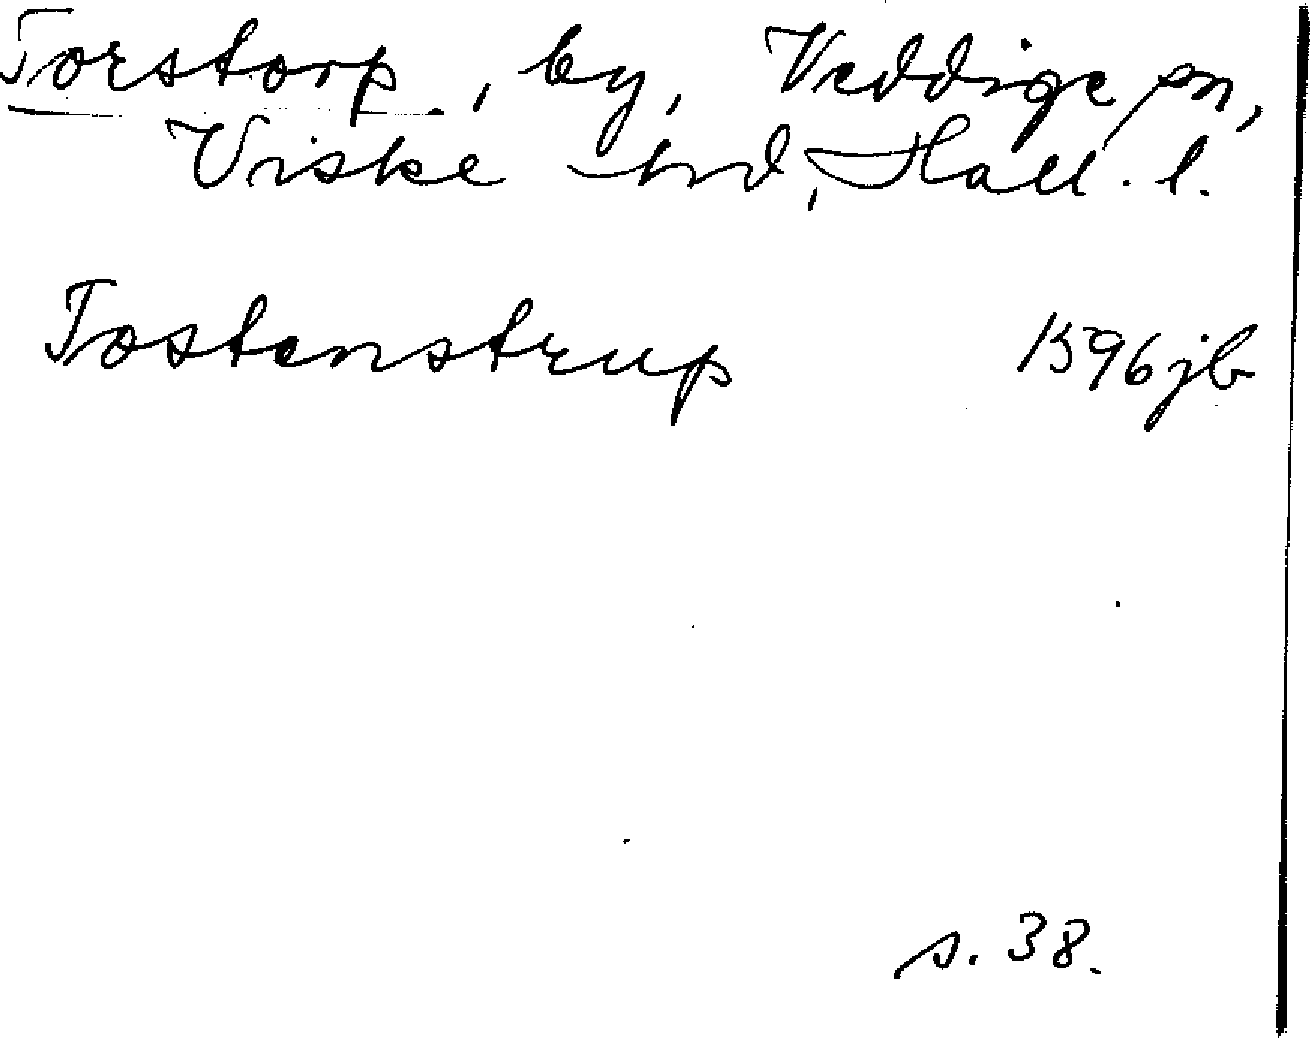 Torstorp, by, Veddige sn,
Viske hd, Hall. l.
Tostenstrup 1596 jb
s. 38.